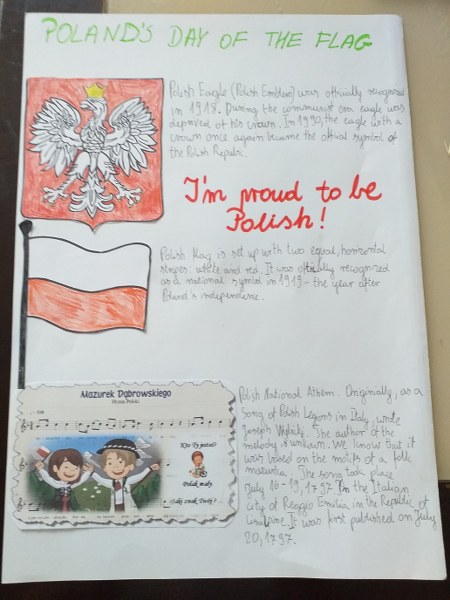 POLAND'S DAY OF THE FLAG
Polish Eagle (Polish Emblem) was officially recognized
in 1918. During the communist era eagle was
deprived of his crown. In 1990, the eagle with a
crown once again became the official symbol of
the Polish Republic.
I'm proud to be
Polish!
Polish flag is set up with two equal, horizontal
stripes: white and red. It was officially recognized
as a national symbol in 1919 - the year after
Poland's independence.
Mazurek Dąbrowskiego
Hymn Polski
Kto Ty jesteś?
Polak mały.
Jaki znak Twój?
Polish National Athem. Originially, as a
song of Polish Legions in Italy, wrote
Joseph Wybicki. The author of the
melody is unkown. We know but it
was based on the motifs of a folk
mazurka. The song took place
July 16-19, 1797 In the Italian
city of Reggio Emilia in the Republic of
It was first published on July
20, 1797.